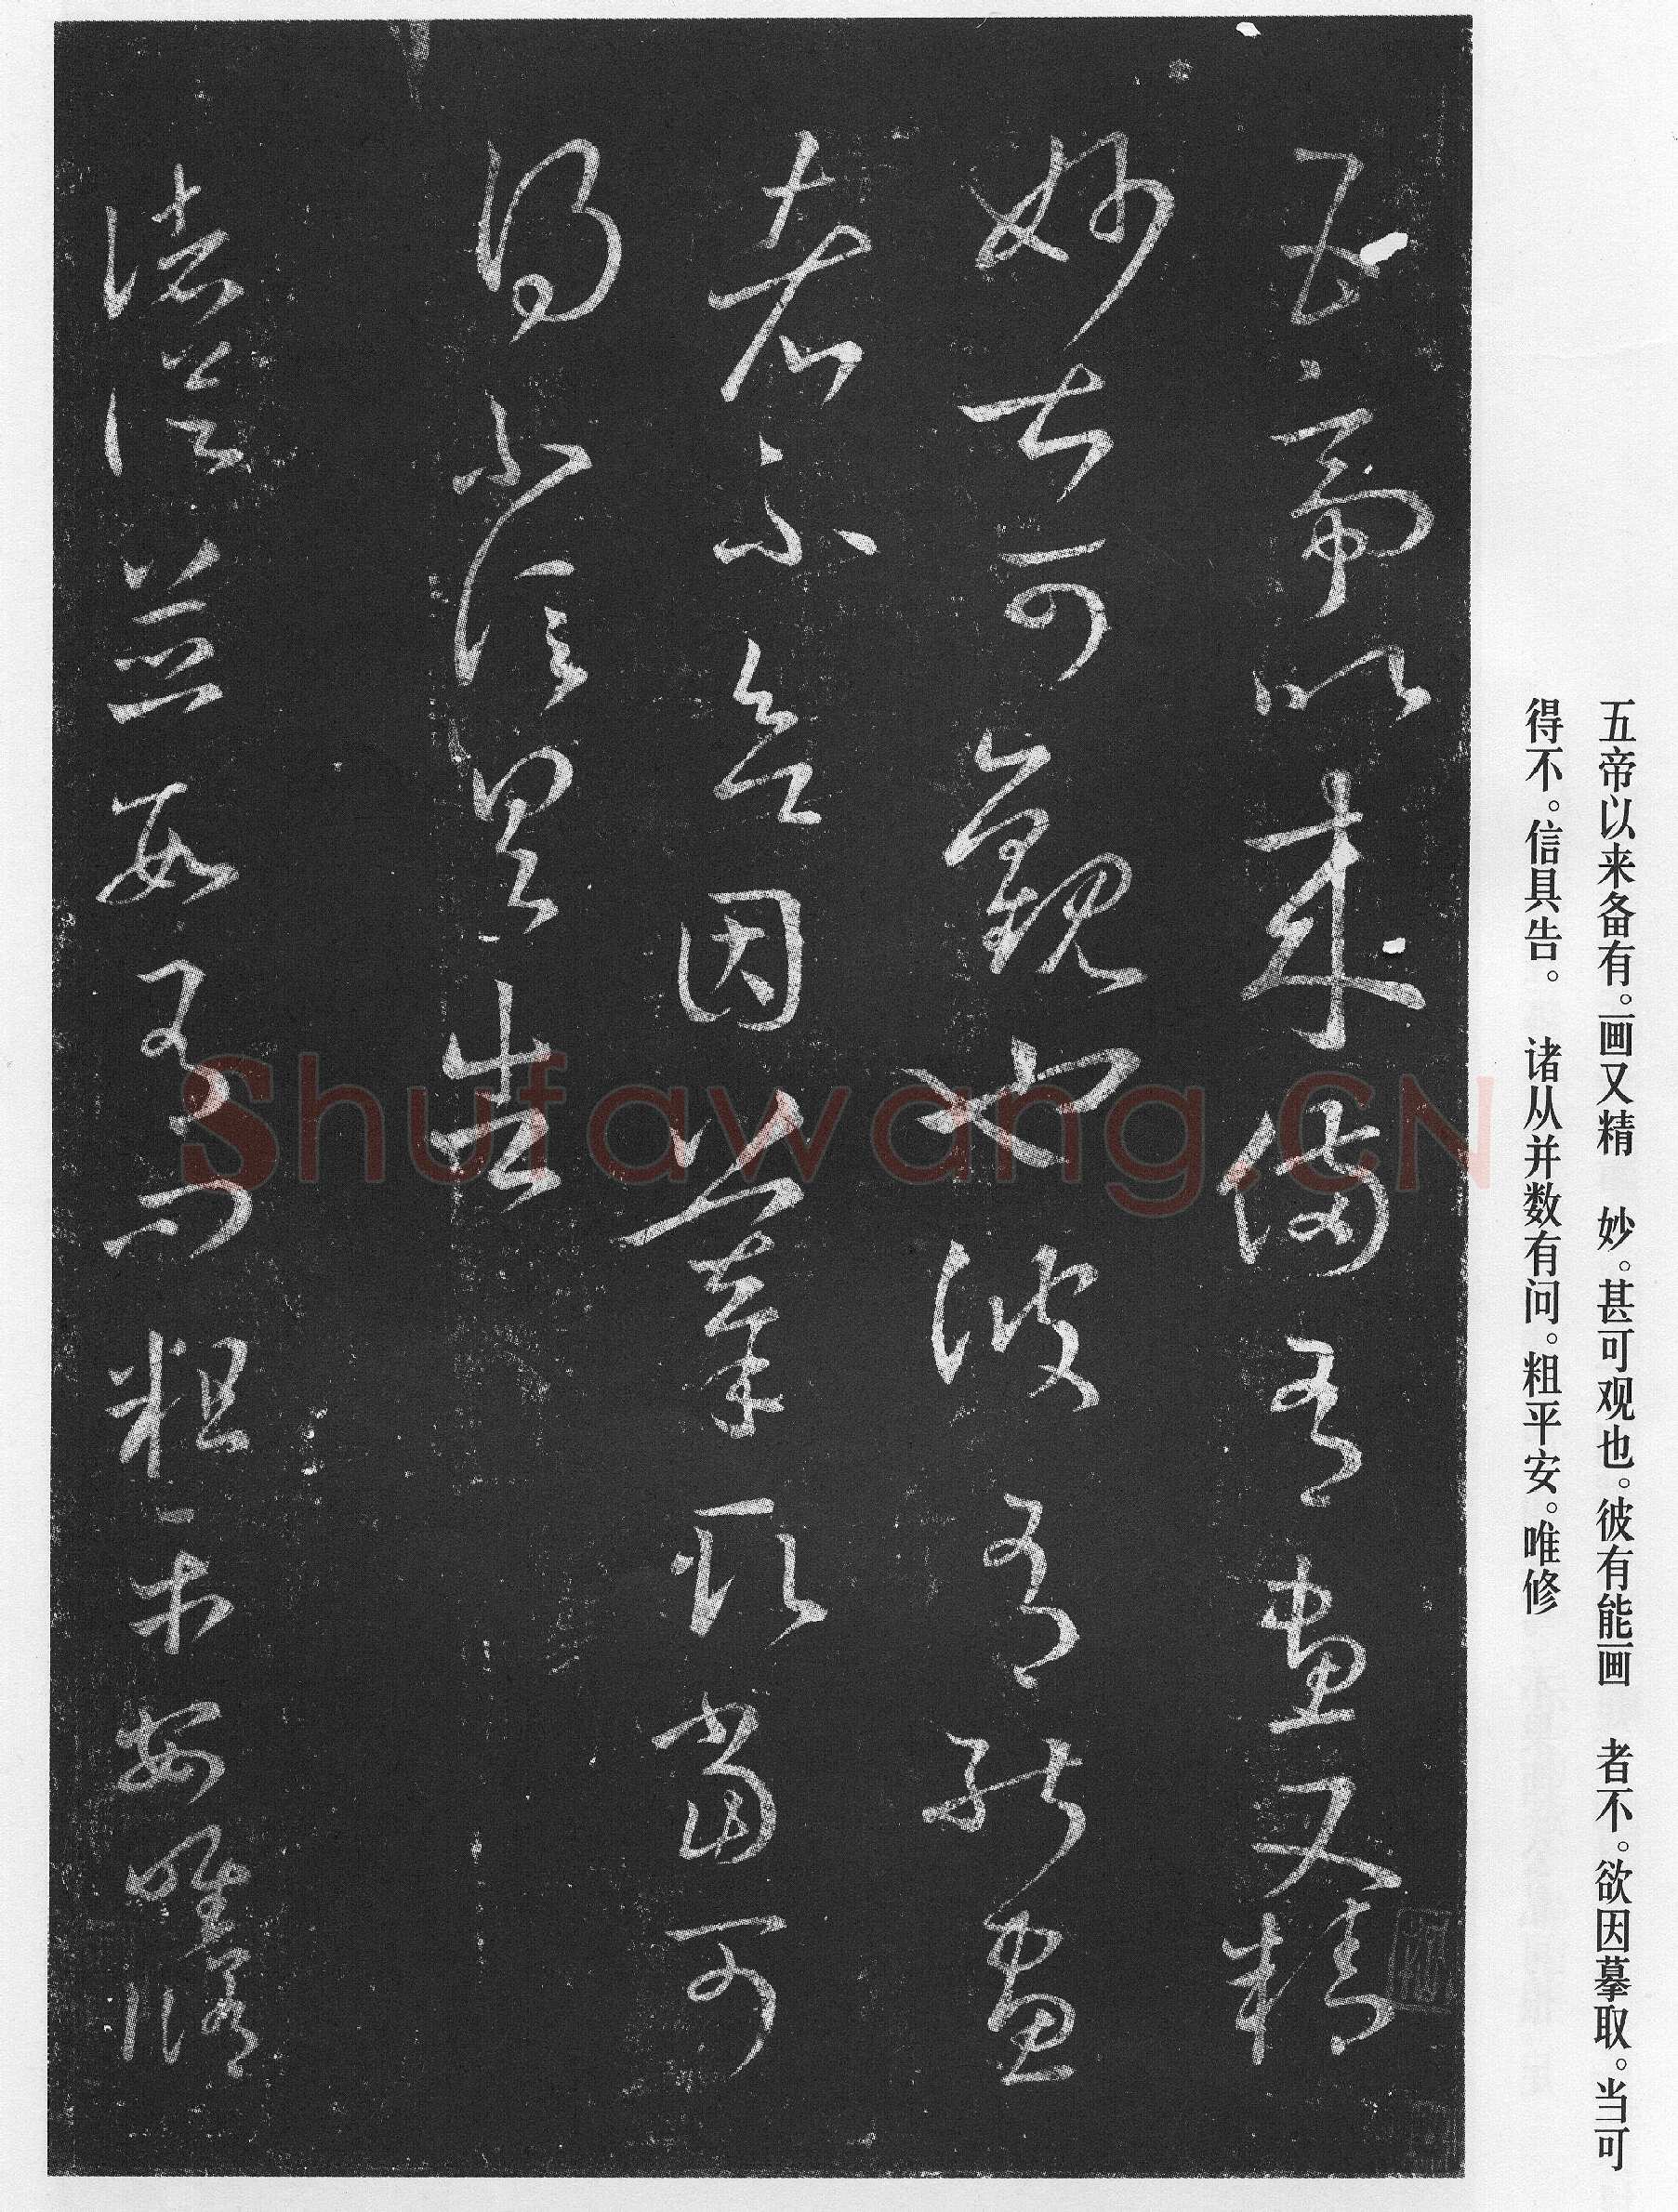 五帝以来备有。画又精 妙。甚可观也。彼有能画 者不。欲因摹取。当可
得不。信具告。 诸从并数有问。粗平安。唯修
五帝以来備有畫又精
妙甚可觀也彼有能畫
者不欲因摹取當可
得不信具告
諸從並數有問粗平安唯修
Shufawang.CN